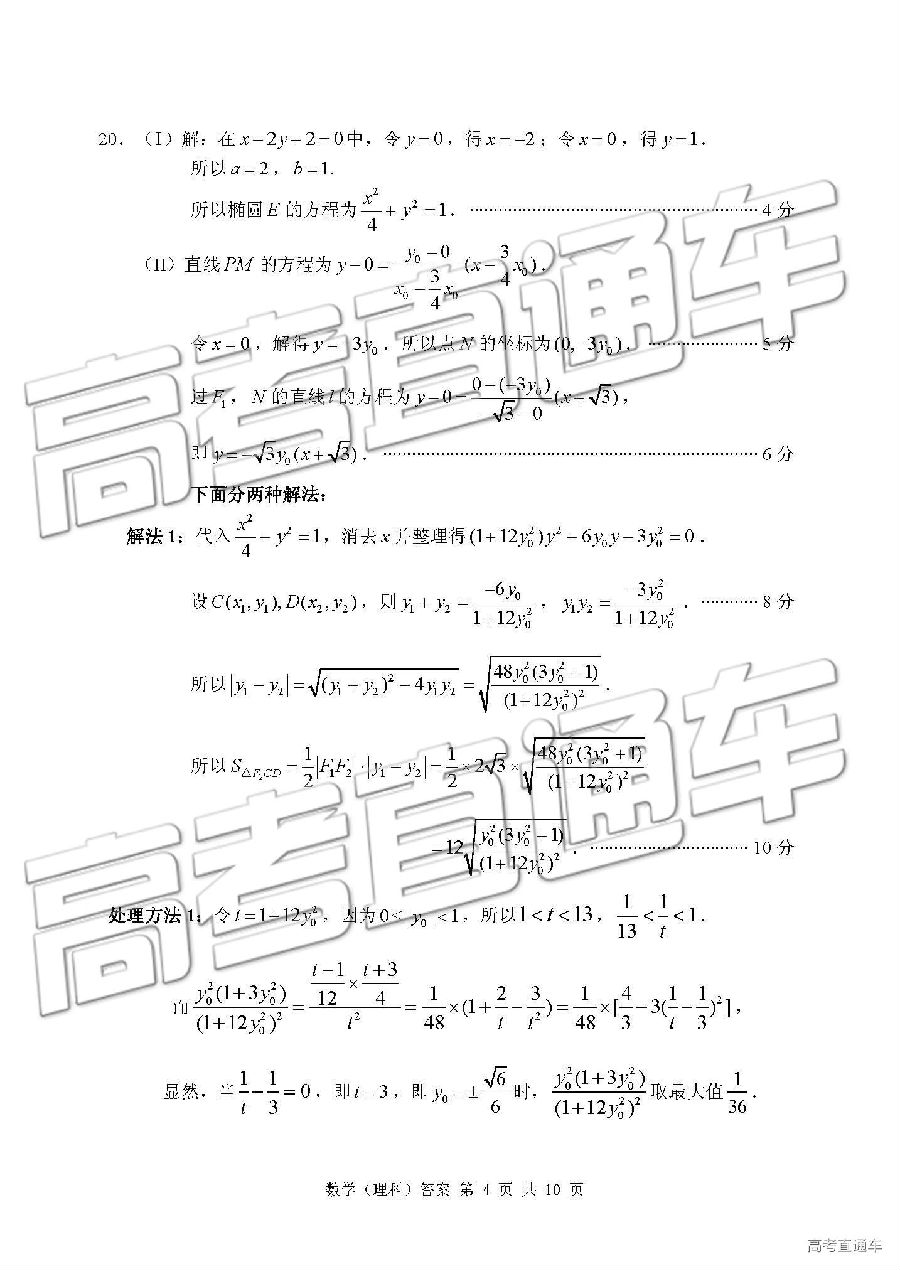 20．（Ⅰ）解：在 x－2y－2＝0 中，令 y＝0，得 x＝－2；令 x＝0，得 y＝1．
所以 a＝2，b＝1.
所以椭圆 E 的方程为 x²/4 + y² = 1．4 分
（II）直线 PM 的方程为 y－0＝(y₀－0)/(x₀－(3/4)x₀) (x－(3/4)x₀)．
令 x＝0，解得 y＝ 3y₀．所以点 N 的坐标为 (0, 3y₀)．5 分
过 F₁，N 的直线 l 的方程为 y－0＝(0－(－3y₀))/(√3 0) (x－√3)，
则 y＝－√3y₀(x＋√3)．6 分
下面分两种解法：
解法 1：代入 x²/4 － y² ＝1，消去 x 并整理得 (1＋12y₀²)y²－6y₀y－3y₀²＝0．
设 C(x₁, y₁), D(x₂, y₂)，则 y₁＋y₂＝－6y₀/(1 12y₀²)，y₁y₂＝ 3y₀²/(1＋12y₀²)．8 分
所以 |y₁－y₂|＝√((y₁－y₂)²－4y₁y₂)＝√(48y₀²(3y₀²－1)/(1－12y₀²)²)．
所以 S△F₂CD＝1/2|F₁F₂|·|y₁－y₂|＝1/2×2√3×√(48y₀²(3y₀²＋1)/(1 12y₀²)²)
－12√(y₀²(3y₀²－1)/(1＋12y₀²)²)．10 分
处理方法 1：令 t＝1－12y₀²，因为 0< y₀ <1，所以 1<t<13，1/13<1/t<1．
而 y₀²(1＋3y₀²)/(1＋12y₀²)²＝((t－1)/12×(t＋3)/4)/t²＝1/48×(1＋2/t－3/t²)＝1/48×[4/3－3(1/t－1/3)²]，
显然，当 1/t－1/3＝0，即 t＝3，即 y₀＝±√6/6 时，y₀²(1＋3y₀²)/(1＋12y₀²)² 取最大值 1/36．
数学（理科）答案 第 4 页 共 10 页
高考直通车
高考直通车
高考直通车